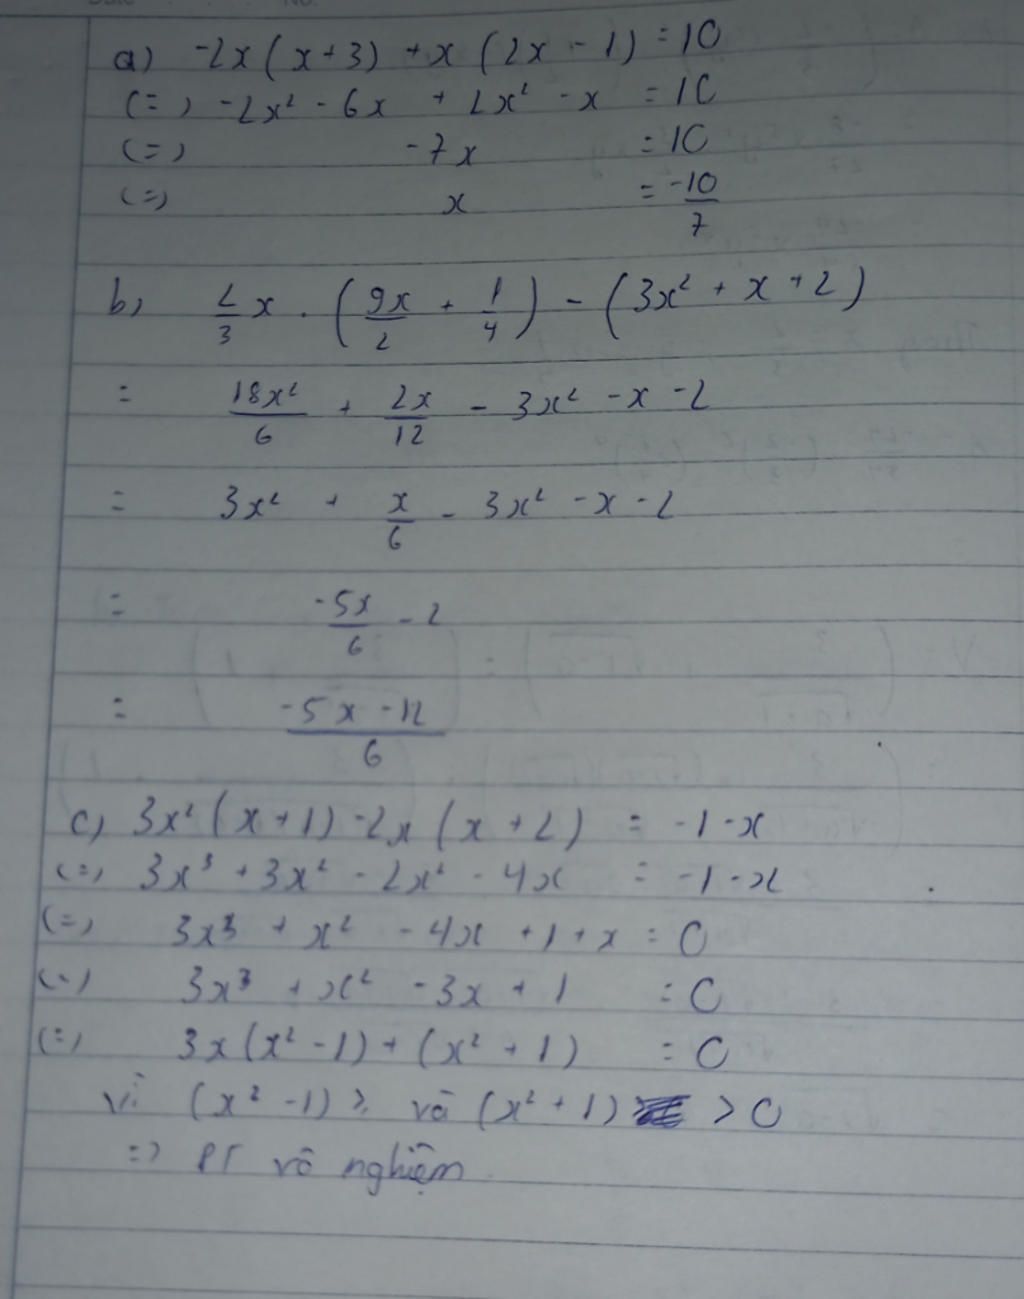 a) -2x(x+3) + x(2x-1) = 10
(=) -2x² - 6x + 2x² - x = 10
(=) -7x = 10
(=) x = -10/7
b) 2/3 x . (9x/2 + 1/4) - (3x² + x + 2)
= 18x²/6 + 2x/12 - 3x² - x - 2
= 3x² + x/6 - 3x² - x - 2
= -5x/6 - 2
= -5x-12/6
c) 3x²(x+1) - 2x(x+2) = -1-x
(=) 3x³ + 3x² - 2x² - 4x = -1-x
(=) 3x³ + x² - 4x + 1 + x = 0
(=) 3x³ + x² - 3x + 1 = 0
(=) 3x(x²-1) + (x²+1) = 0
Vì (x²-1) ≥ và (x²+1) > 0
=> PT vô nghiệm.